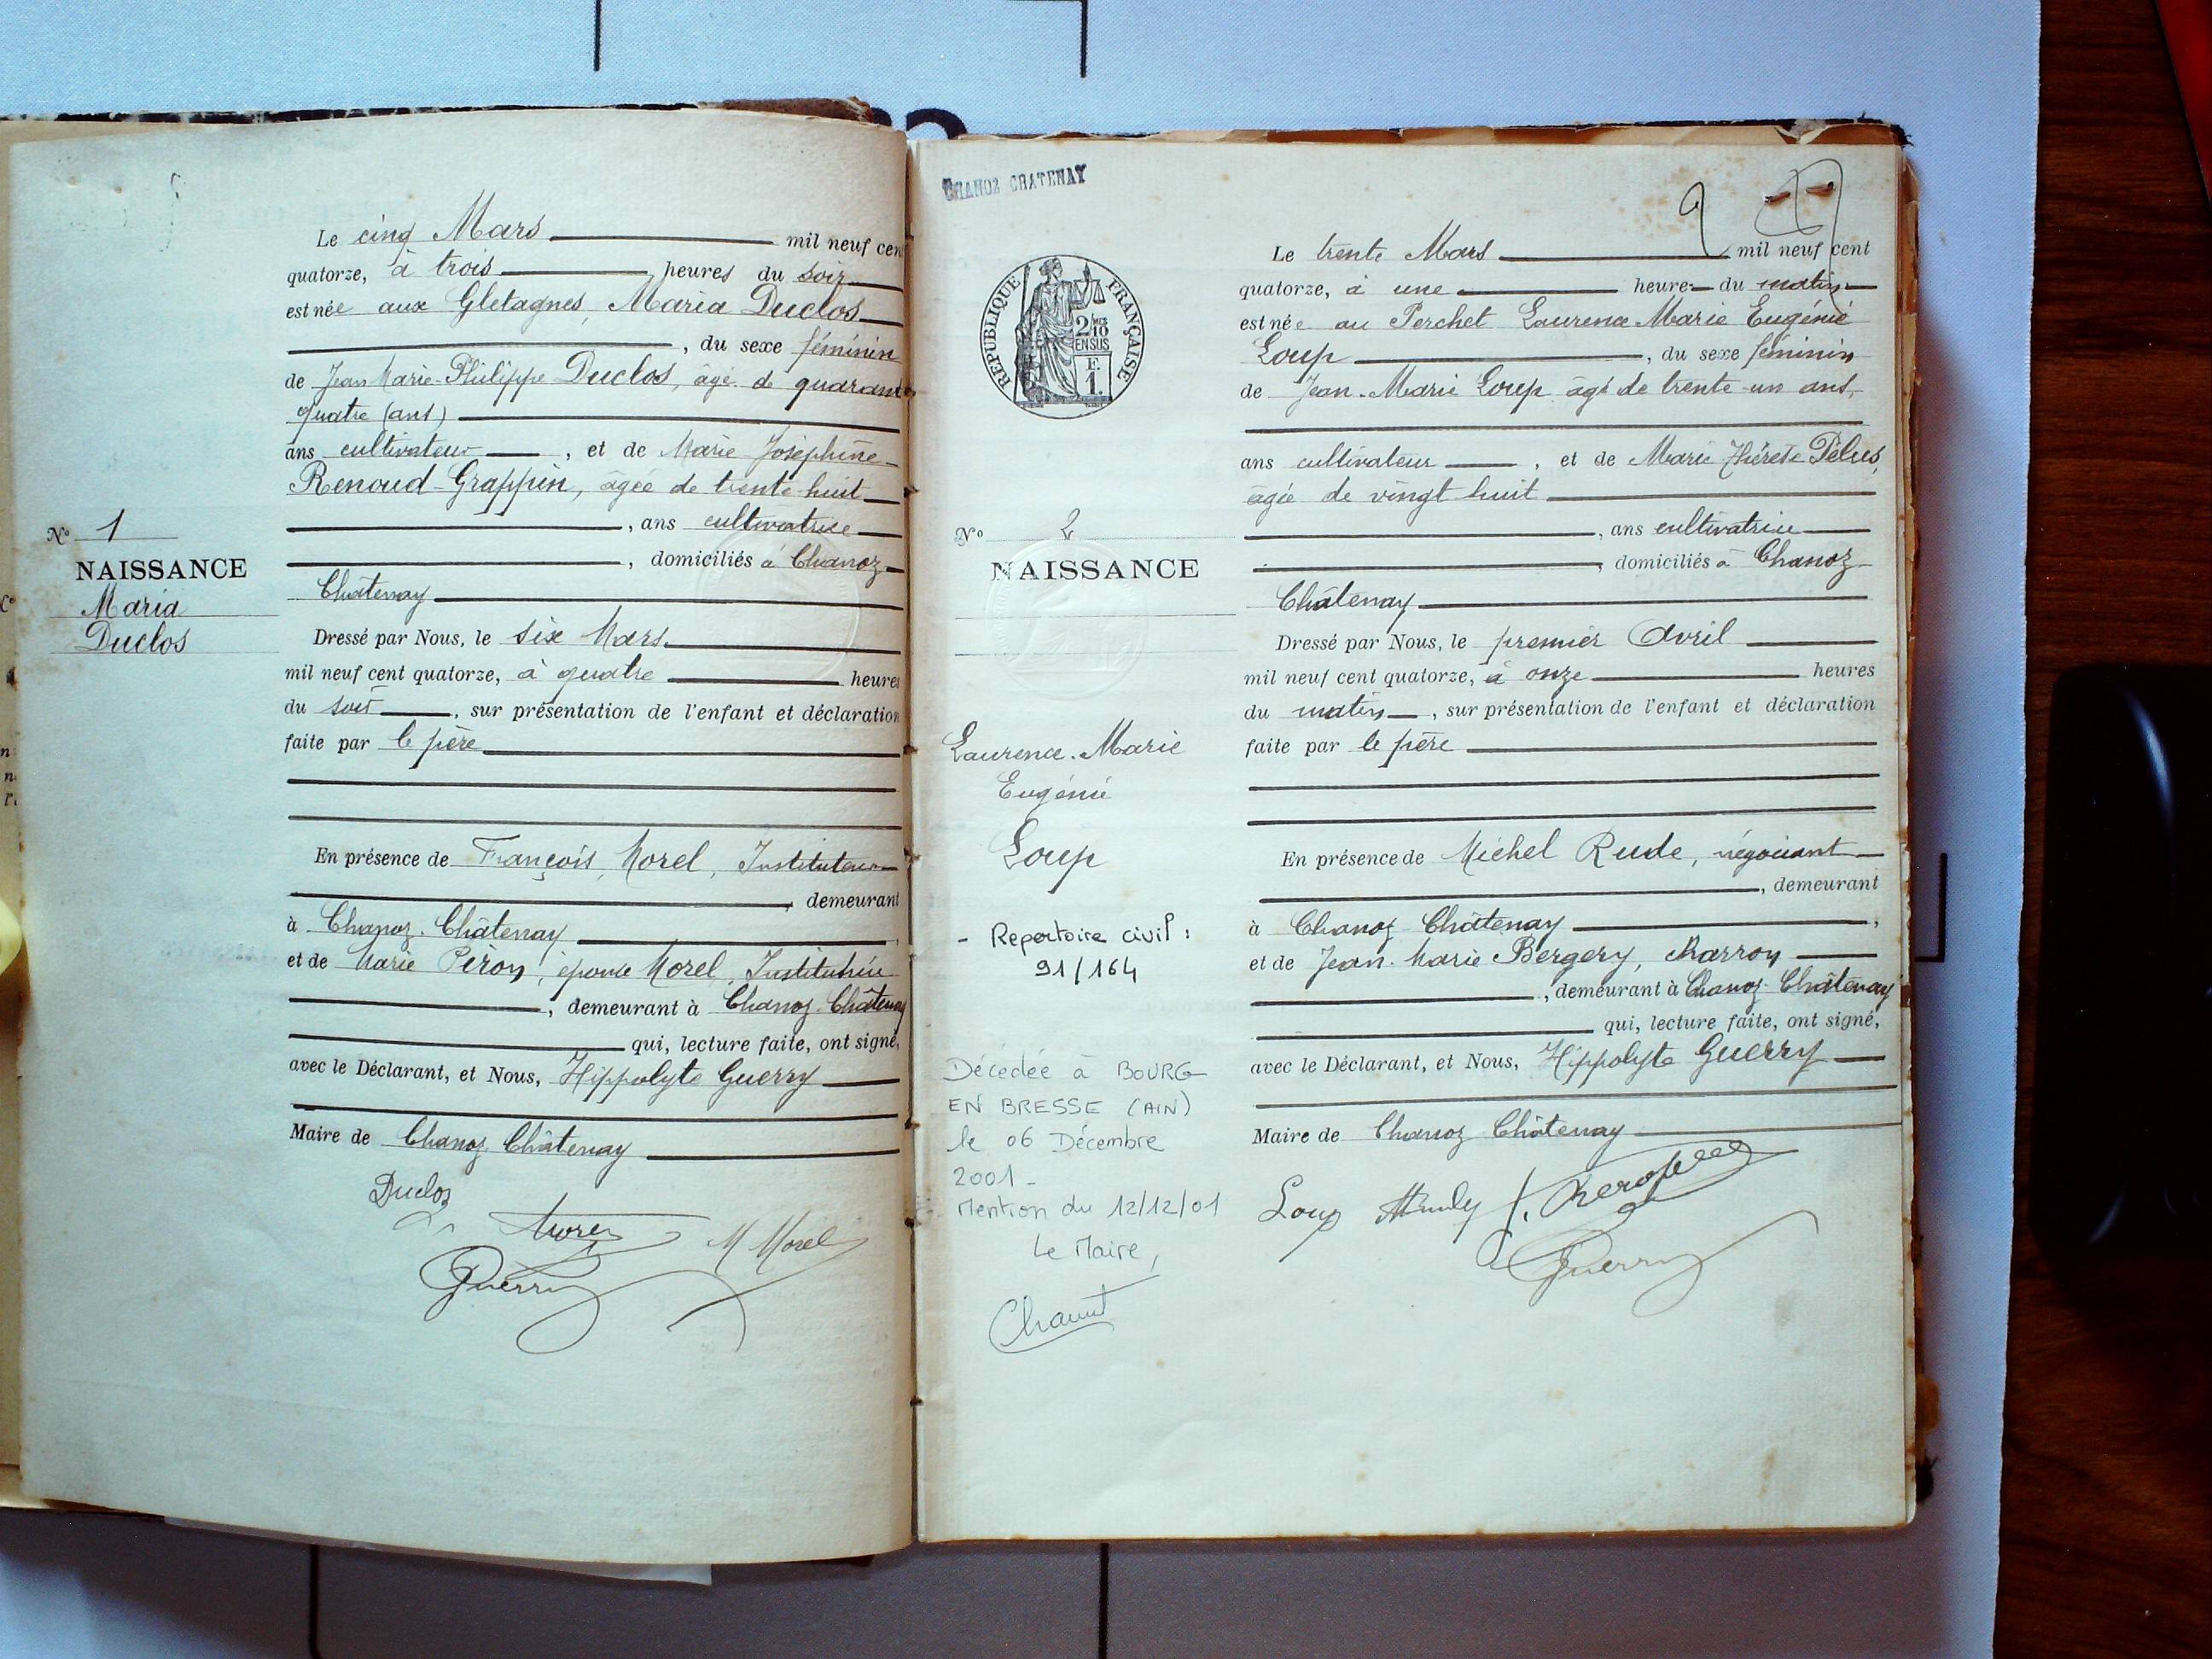 Le cinq Mars mil neuf cen
quatorze, à trois heures du soir
est née aux Gletagnes, Maria Duclos
, du sexe féminin
de Jean Marie-Philippe Duclos, âgé de quarante
quatre (ans)
ans cultivateur , et de Marie Joséphine
Renoud-Grappin, âgée de trente-huit
, ans cultivatrice
N° 1
, domiciliés à Chanoz
NAISSANCE
Châtenay
Maria
Duclos
Dressé par Nous, le six Mars
mil neuf cent quatorze, à quatre heures
du soir , sur présentation de l'enfant et déclaration
faite par le père
En présence de François Morel, Instituteur
, demeurant
à Chanoz-Châtenay
et de Marie Péron, épouse Morel, Institutrice
, demeurant à Chanoz-Châtenay
qui, lecture faite, ont signé,
avec le Déclarant, et Nous, Hippolyte Guerry
Maire de Chanoz Châtenay
Duclos
Morel
M Morel
Guerry
CHANOZ CHATENAY
9
RÉPUBLIQUE FRANÇAISE
2/10
EN SUS
F.
1.
Le trente Mars mil neuf cent
quatorze, à une heure du matin
est née au Perchet Laurence Marie Eugénie
Loup , du sexe féminin
de Jean-Marie Loup âgé de trente-un ans,
ans cultivateur , et de Marie Thérèse
âgée de vingt huit
, ans cultivatrice
N° 2
NAISSANCE
, domiciliés à Chanoz
Châtenay
Dressé par Nous, le premier Avril
mil neuf cent quatorze, à onze heures
du matin , sur présentation de l'enfant et déclaration
faite par le père
Laurence-Marie
Eugénie
Loup
En présence de Michel Rude, négociant
, demeurant
à Chanoz-Châtenay ,
et de Jean-Marie Bergery, charron
, demeurant à Chanoz-Châtenay
qui, lecture faite, ont signé,
avec le Déclarant, et Nous, Hippolyte Guerry
Maire de Chanoz Châtenay
- Repertoire civil :
91/164
Décédée à BOURG
EN BRESSE (AIN)
le 06 Décembre
2001 -
Mention du 12/12/01
Le Maire,
Loup
Guerry